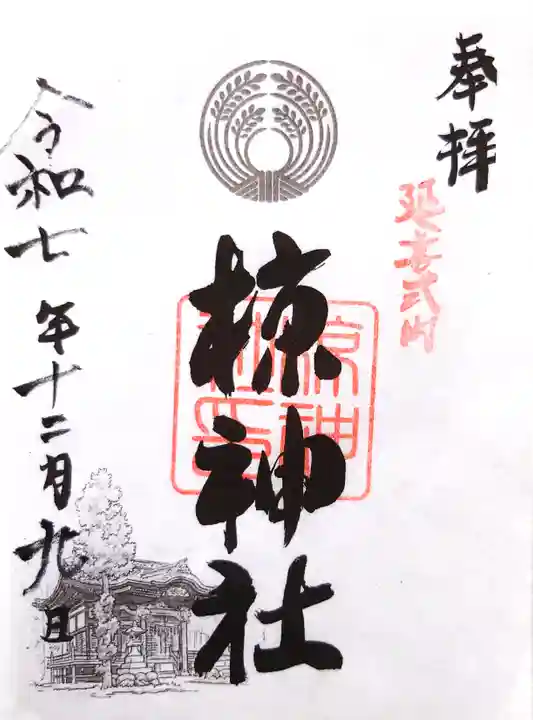 奉拝
延喜式内
椋神社
椋神社印
令和七年十二月九日